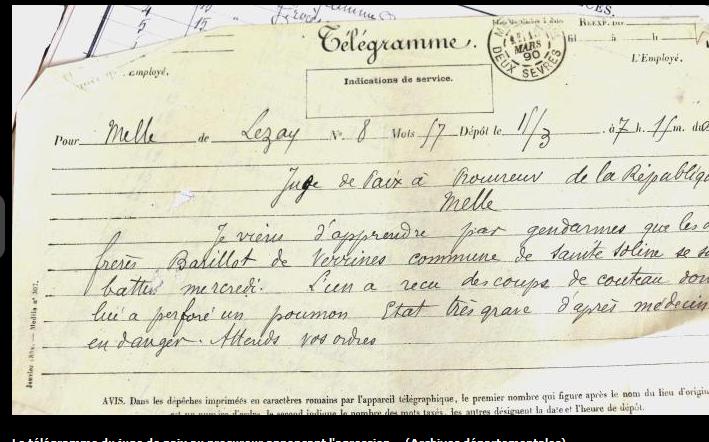 5 15
Télégramme.
Indications de service.
MARS
90
DEUX SEVRES
REEXP.
L'Employé.
employé,
Pour Melle de Lezay N° 8 Mots 57 Dépôt le 15/3 à 7 h. 15 m. du
Juge de Paix à Procureur de la Républiq
Melle
Je viens d'apprendre par gendarmes que les
frères Barillot de Verrines commune de Sainte Soline se s
battus mercredi. L'un a reçu des coups de couteau don
lui a perforé un poumon Etat très grave d'après médecin
en danger. Attends vos ordres
Janvier Modèle n° 307.
AVIS. Dans les dépêches imprimées en caractères romains par l'appareil télégraphique, le premier nombre qui figure après le nom du lieu d'origin
est un numéro d'ordre, le second indique le nombre des mots taxés, les autres désignent la date et l'heure de dépôt.
Le télégramme du juge de paix au procureur annonçant l'agression. (Archives départementales)